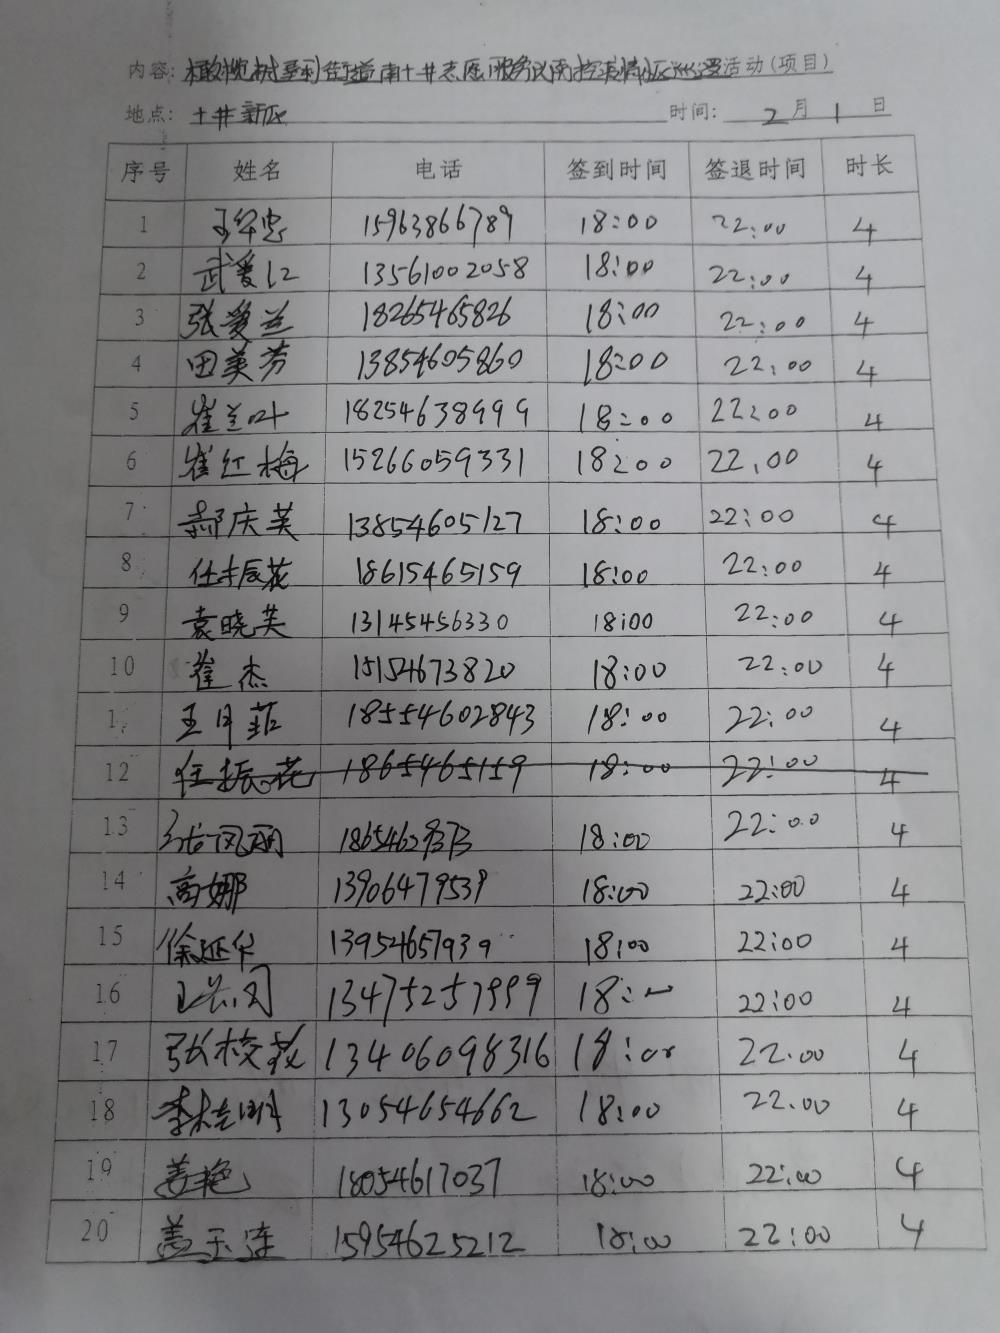 内容: 橄榄树圣利街道南十井志愿服务队防控疫情小区巡逻活动(项目)
地点: 十井新区 时间: 2月1日
序号 姓名 电话 签到时间 签退时间 时长
1 王华忠 15963866789 18:00 22:00 4
2 武爱仁 13561002058 18:00 22:00 4
3 张爱兰 18265465826 18:00 22:00 4
4 田美芬 13854605860 18:00 22:00 4
5 崔兰叶 18254638999 18:00 22:00 4
6 崔红梅 15266059331 18:00 22:00 4
7 郝庆芙 13854605127 18:00 22:00 4
8 任振花 18615465159 18:00 22:00 4
9 袁晓芙 13145456330 18:00 22:00 4
10 崔杰 15154673820 18:00 22:00 4
1 王月茹 18554602843 18:00 22:00 4
12 任振花 18654465159 18:00 22:00 4
13 张凤丽 18:00 22:00 4
14 高娜 13906479539 18:00 22:00 4
15 徐延华 13954657939 18:00 22:00 4
16 13475257999 18:00 22:00 4
17 张校花 13406098316 18:00 22:00 4
18 李桂明 13054654662 18:00 22:00 4
19 姜艳 18054617037 18:00 22:00 4
20 盖玉莲 15954625212 18:00 22:00 4